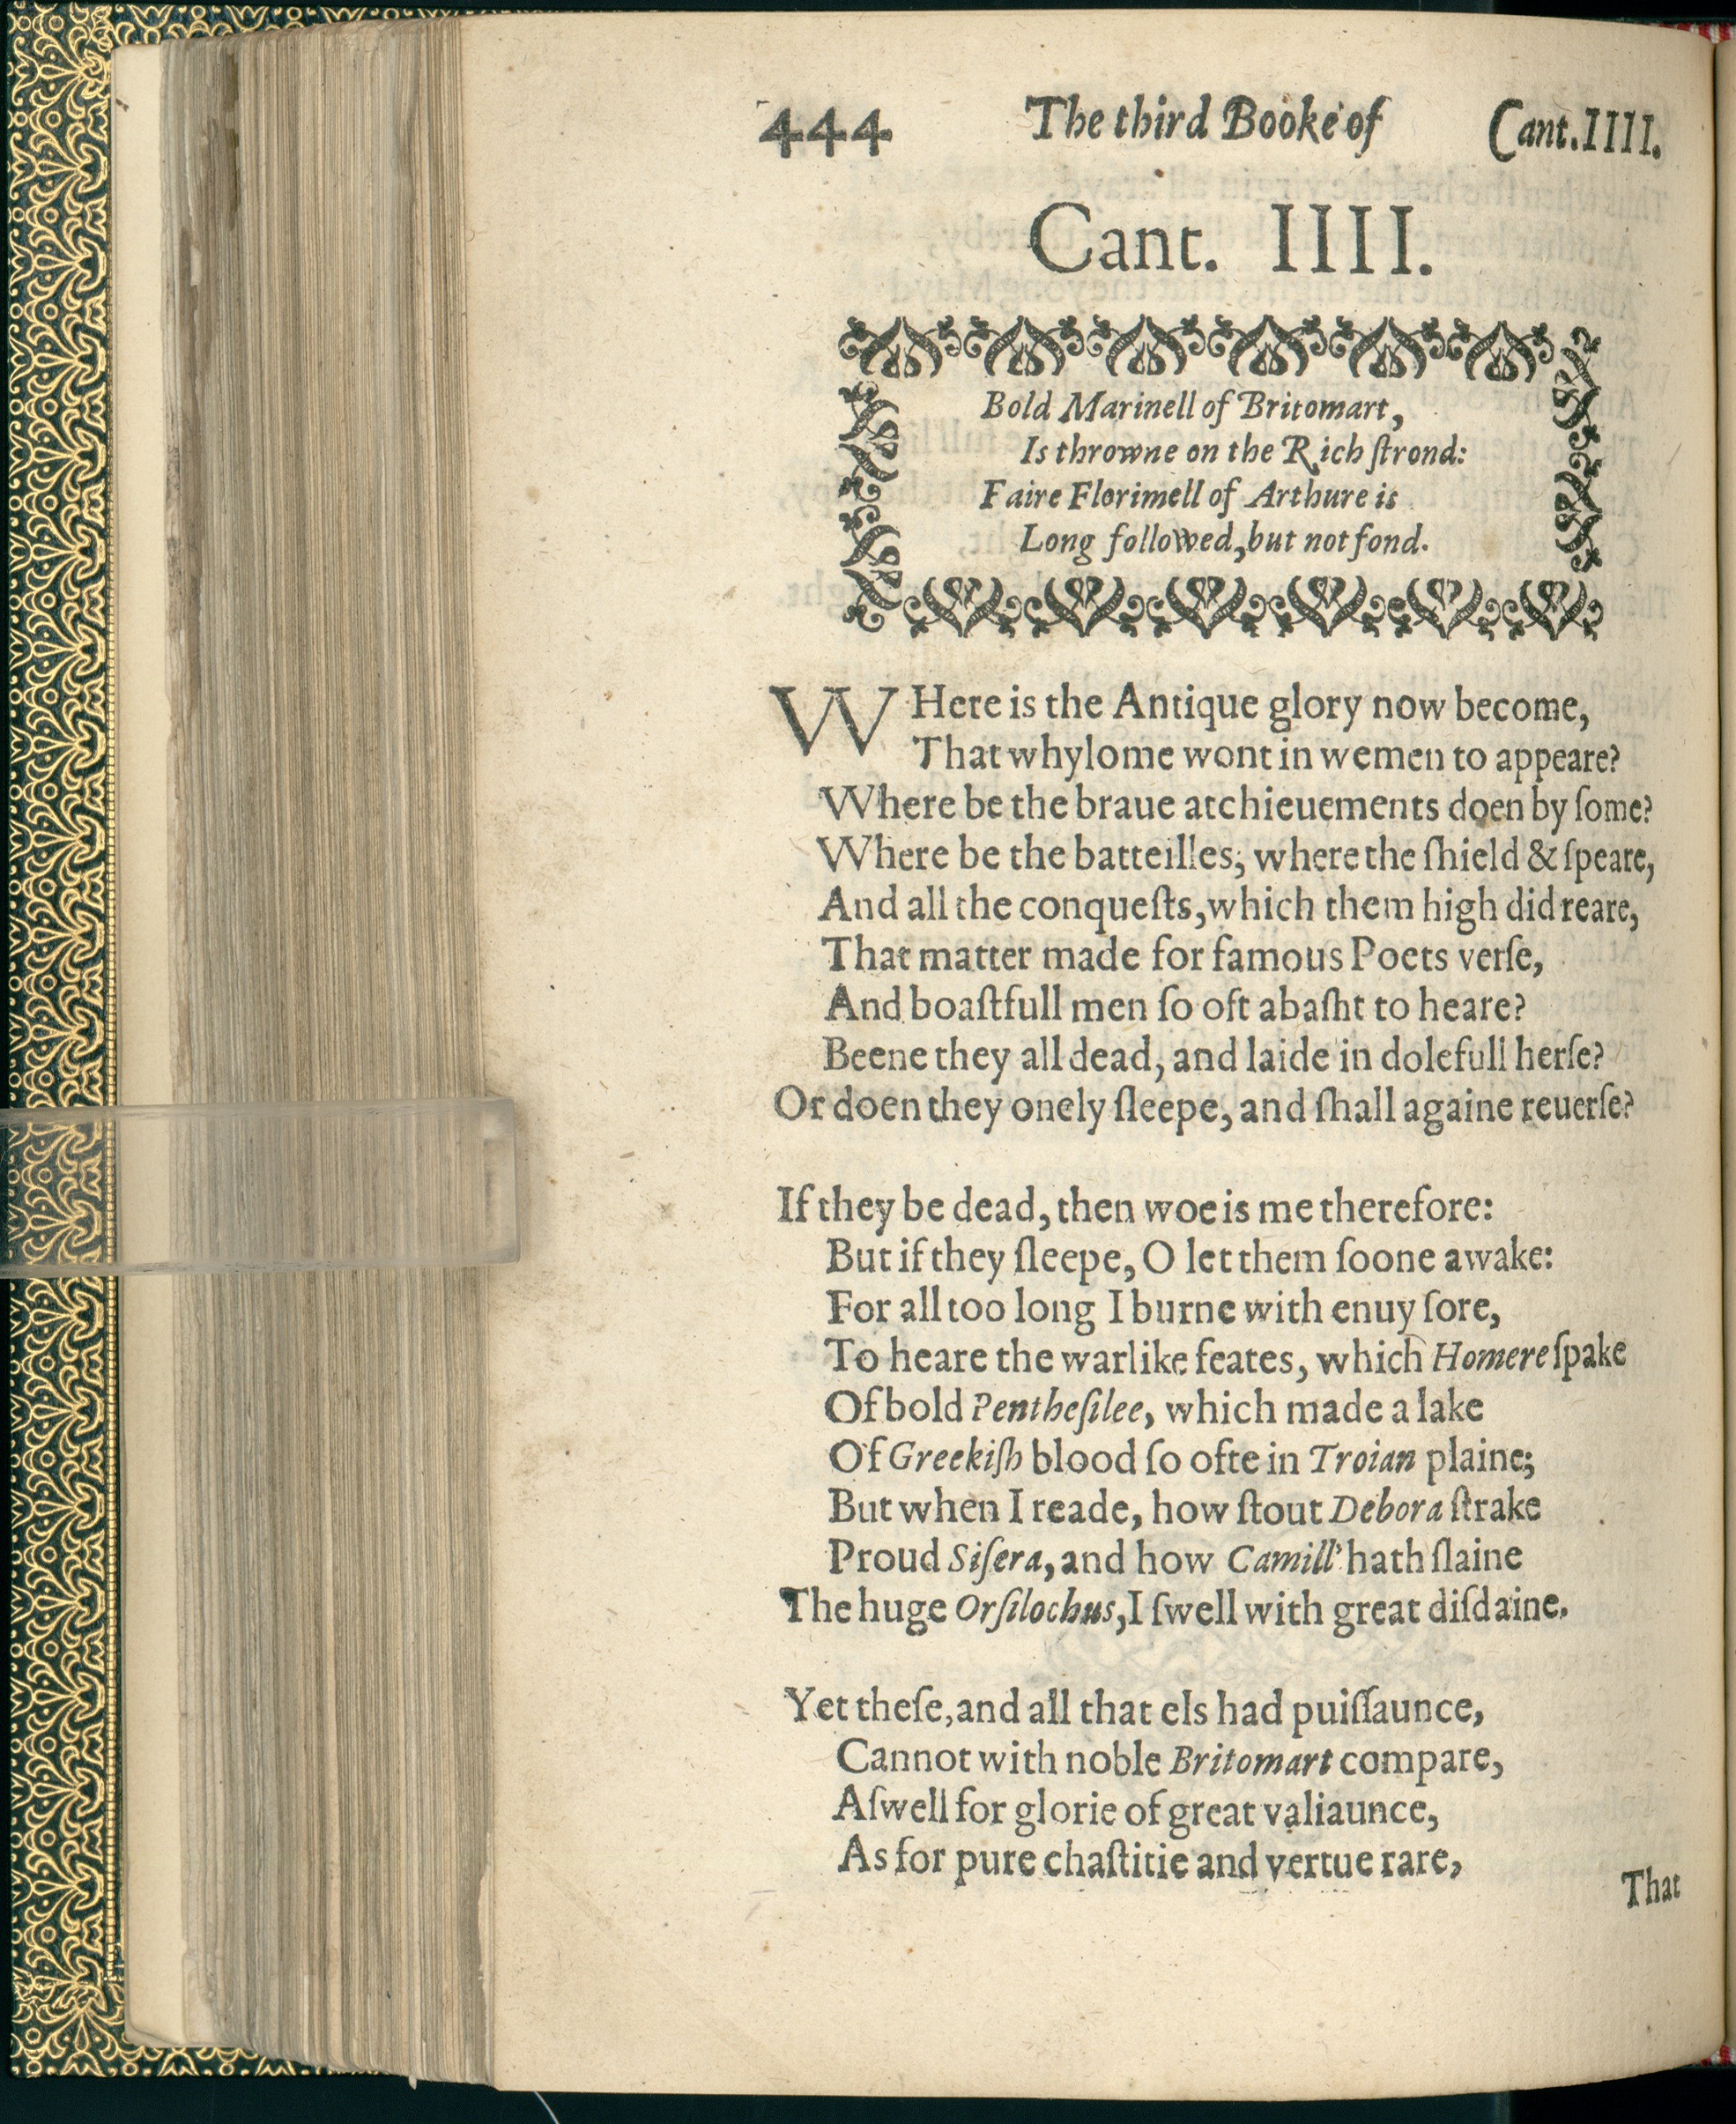 444 The third Booke of Cant. IIII.
Cant. IIII.
Bold Marinell of Britomart,
Is throwne on the Rich ſtrond:
Faire Florimell of Arthure is
Long followed, but not fond.
WHere is the Antique glory now become,
That whylome wont in wemen to appeare?
Where be the braue atchieuements doen by ſome?
Where be the batteilles, where the ſhield & ſpeare,
And all the conqueſts, which them high did reare,
That matter made for famous Poets verſe,
And boaſtfull men ſo oft abaſht to heare?
Beene they all dead, and laide in dolefull herſe?
Or doen they onely ſleepe, and ſhall againe reuerſe?
If they be dead, then woe is me therefore:
But if they ſleepe, O let them ſoone awake:
For all too long I burne with enuy ſore,
To heare the warlike feates, which Homere ſpake
Of bold Pentheſilee, which made a lake
Of Greekiſh blood ſo ofte in Troian plaine;
But when I reade, how ſtout Debora ſtrake
Proud Siſera, and how Camill' hath ſlaine
The huge Orſilochus, I ſwell with great diſdaine.
Yet theſe, and all that els had puiſſaunce,
Cannot with noble Britomart compare,
Aſwell for glorie of great valiaunce,
As for pure chaſtitie and vertue rare,
That